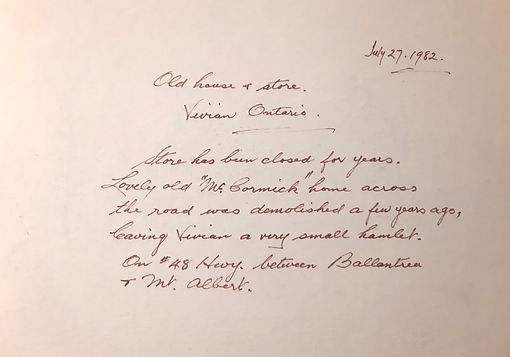 July 27. 1982.
Old house & store.
Vivian Ontario.
Store has been closed for years.
Lovely old "Mc Cormick" home across
the road was demolished a few years ago,
leaving Vivian a very small hamlet.
On #48 Hwy. between Ballantrea
& Mt. Albert.